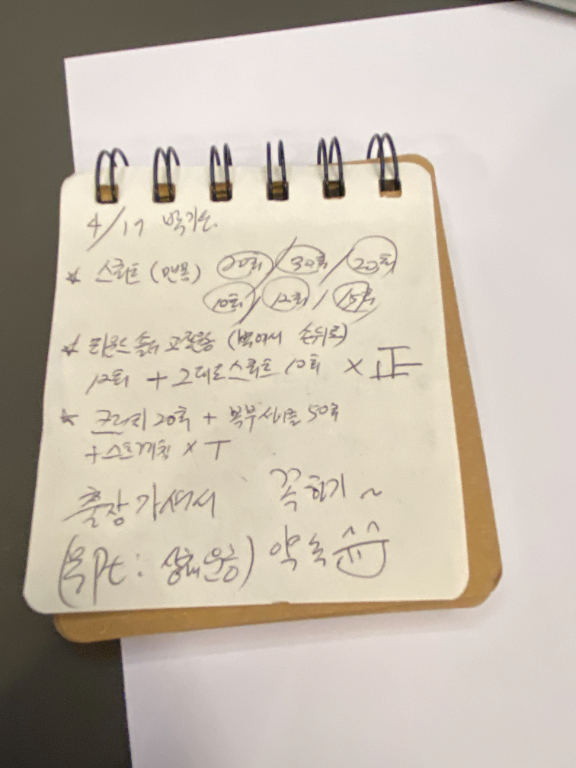 4/17 박기순
* 스쿼트 (맨몸) 20회 / 30회 / 20회
10회 / 12회 / 15회
* 고관절 (벽에서 손뒤로)
12회 + 그대로 스쿼트 10회 × 正
* 크런치 20회 + 복부 50회
+ 스트레칭 × T
출장 가셔서 꼭하기 ~
(목pt : 상체운동) 약속 ^^